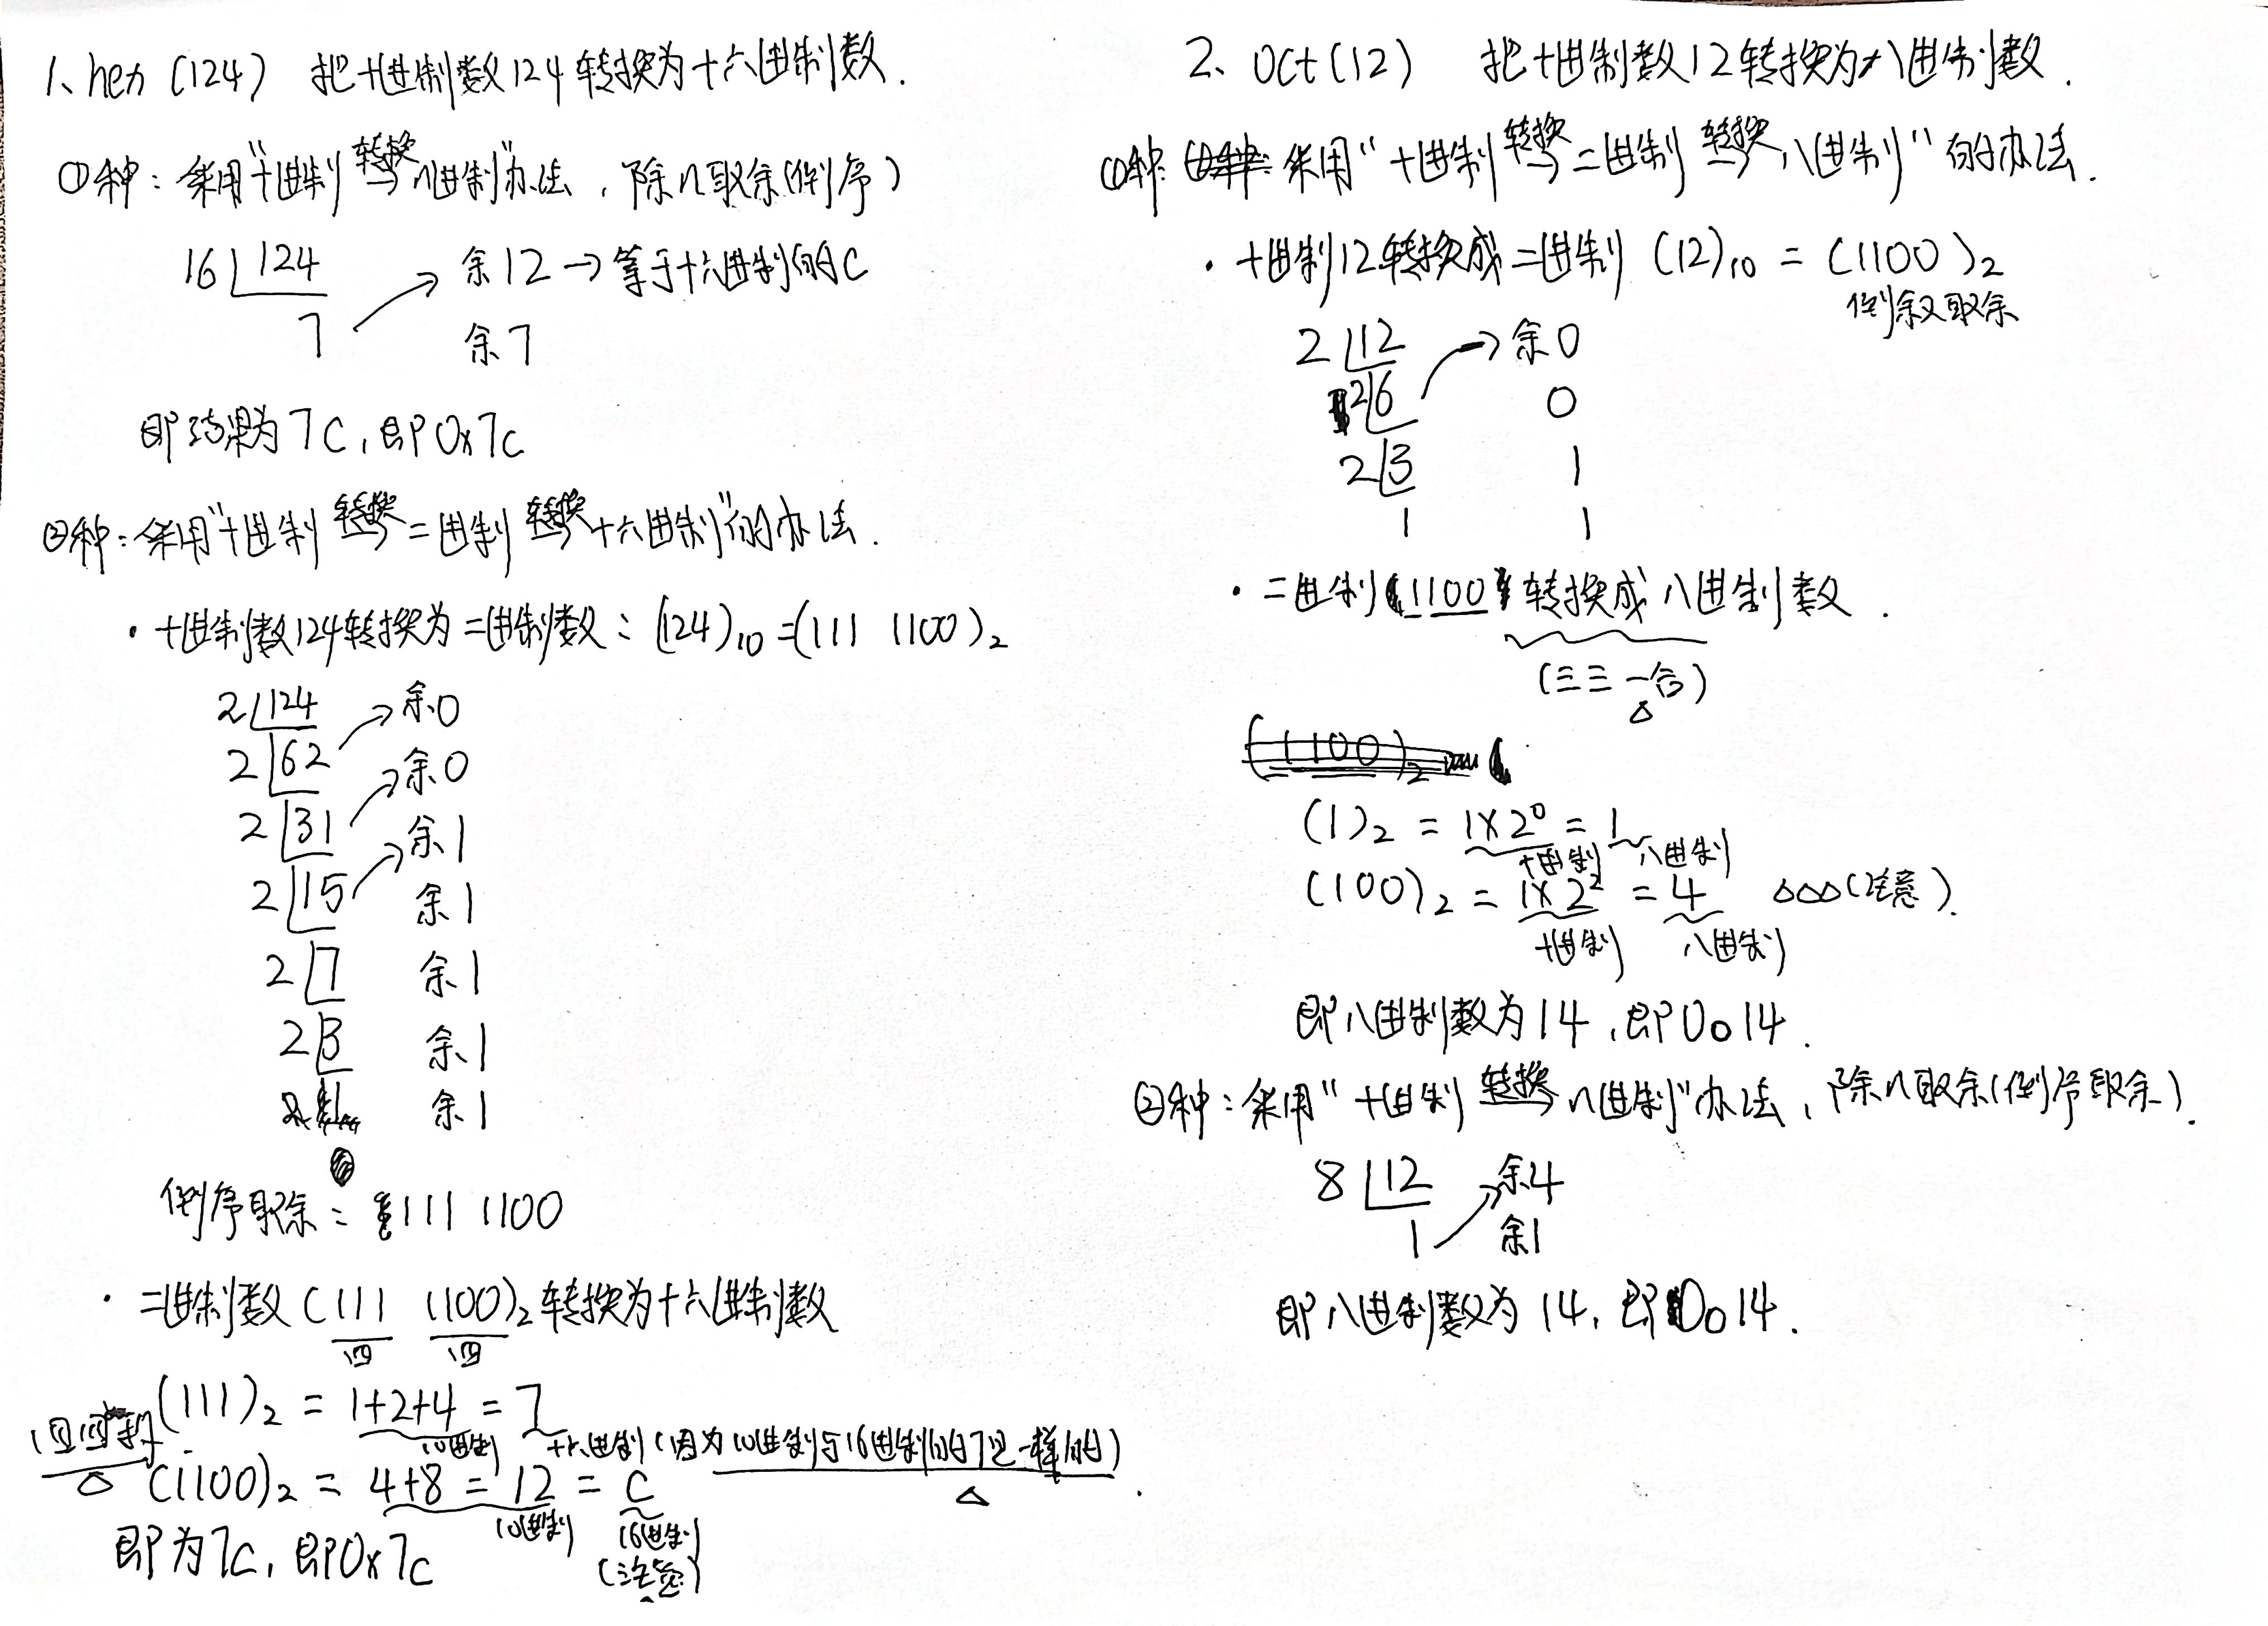 1、hex (124) 把十进制数124转换为十六进制数.
①种：采用“十进制 转换→ n进制”办法，除n取余(倒序)
16 124 余12→等于十六进制的C
7 余7
即结果为7C，即0x7C
②种：采用“十进制 转换→ 二进制 转换→ 十六进制”的办法.
· 十进制数124转换为二进制数：(124)10=(111 1100)2
2 124 余0
2 62 余0
2 31 余1
2 15 余1
2 7 余1
2 3 余1
余1
倒序取余：111 1100
· 二进制数(111 1100)2转换为十六进制数
四 四
(111)2 = 1+2+4 = 7
10进制 十六进制(因为10进制与16进制的7是一样的)
(1100)2 = 4+8 = 12 = C
10进制 16进制
(注意)
即为7C，即0x7C
2、oct(12) 把十进制数12转换为八进制数.
①种：采用“十进制 转换→ 二进制 转换→ 八进制”的办法.
· 十进制12转换成二进制 (12)10 = (1100)2
倒叙取余
2 12 余0
2 6 0
2 3 1
1 1
· 二进制1100转换成八进制数.
(三三一合)
(1100)2
(1)2 = 1×2⁰ = 1
十进制 八进制
(100)2 = 1×2² = 4 △△△(注意).
十进制 八进制
即八进制数为14，即0o14.
②种：采用“十进制 转换→ n进制”办法，除n取余(倒序取余).
8 12 余4
1 余1
即八进制数为14，即0o14.